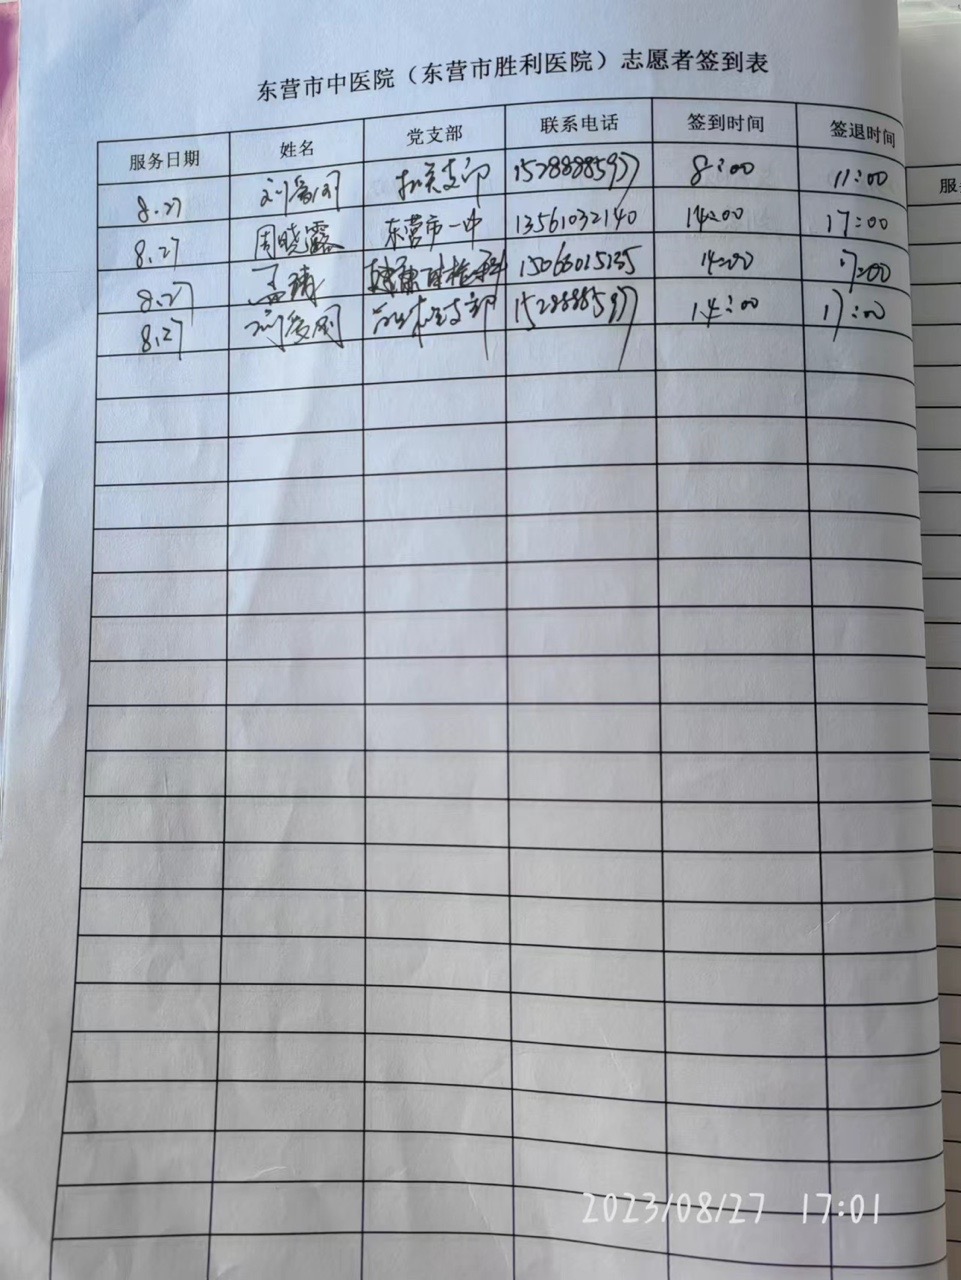 东营市中医院（东营市胜利医院）志愿者签到表
服务日期 姓名 党支部 联系电话 签到时间 签退时间
8.27 刘爱国 机关支部 15288885977 8:00 11:00
8.27 周晓露 东营市一中 13561032140 14:00 17:00
8.27 健康体检科 14:00 17:00
8.27 刘爱国 支部 15288885977 14:00 17:00
服
2023/08/27 17:01